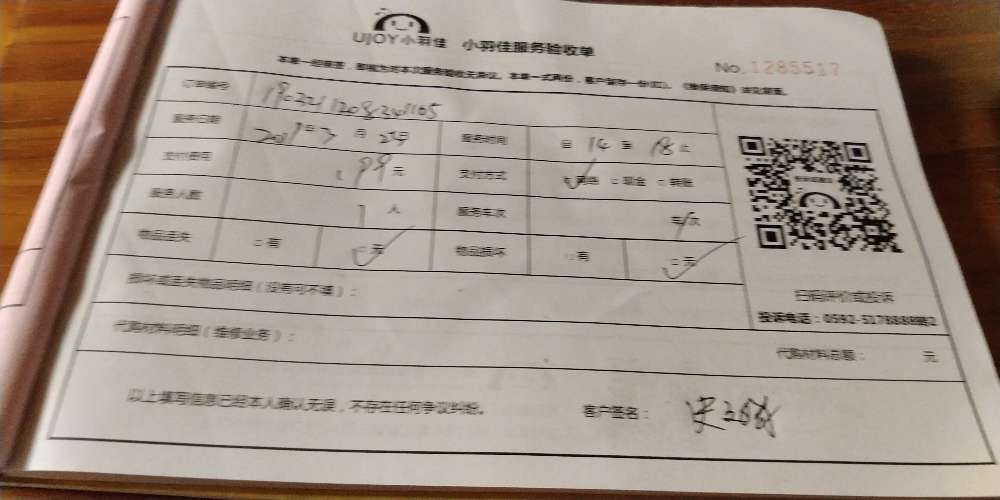 UJOY小羽佳 小羽佳服务验收单
No.1285517
本单一经签签，即视为对本次服务验收无异议。本单一式两份，客户留存一份(红)。《维保须知》详见背面。
订单编号
服务日期 年3月 日 服务时间 自14至18止
支付费用 199元 支付方式 网络 现金 转账
服务人数 1人 服务车次 车/次
物品丢失 有 无 物品损坏 有 无
损坏或丢失物品明细（没有可不填）：
代购材料明细（维修业务）：
代购材料总额： 元
以上填写信息已经本人确认无误，不存在任何争议纠纷。 客户签名：
扫码评价或投诉
投诉电话：0592-5178888转2